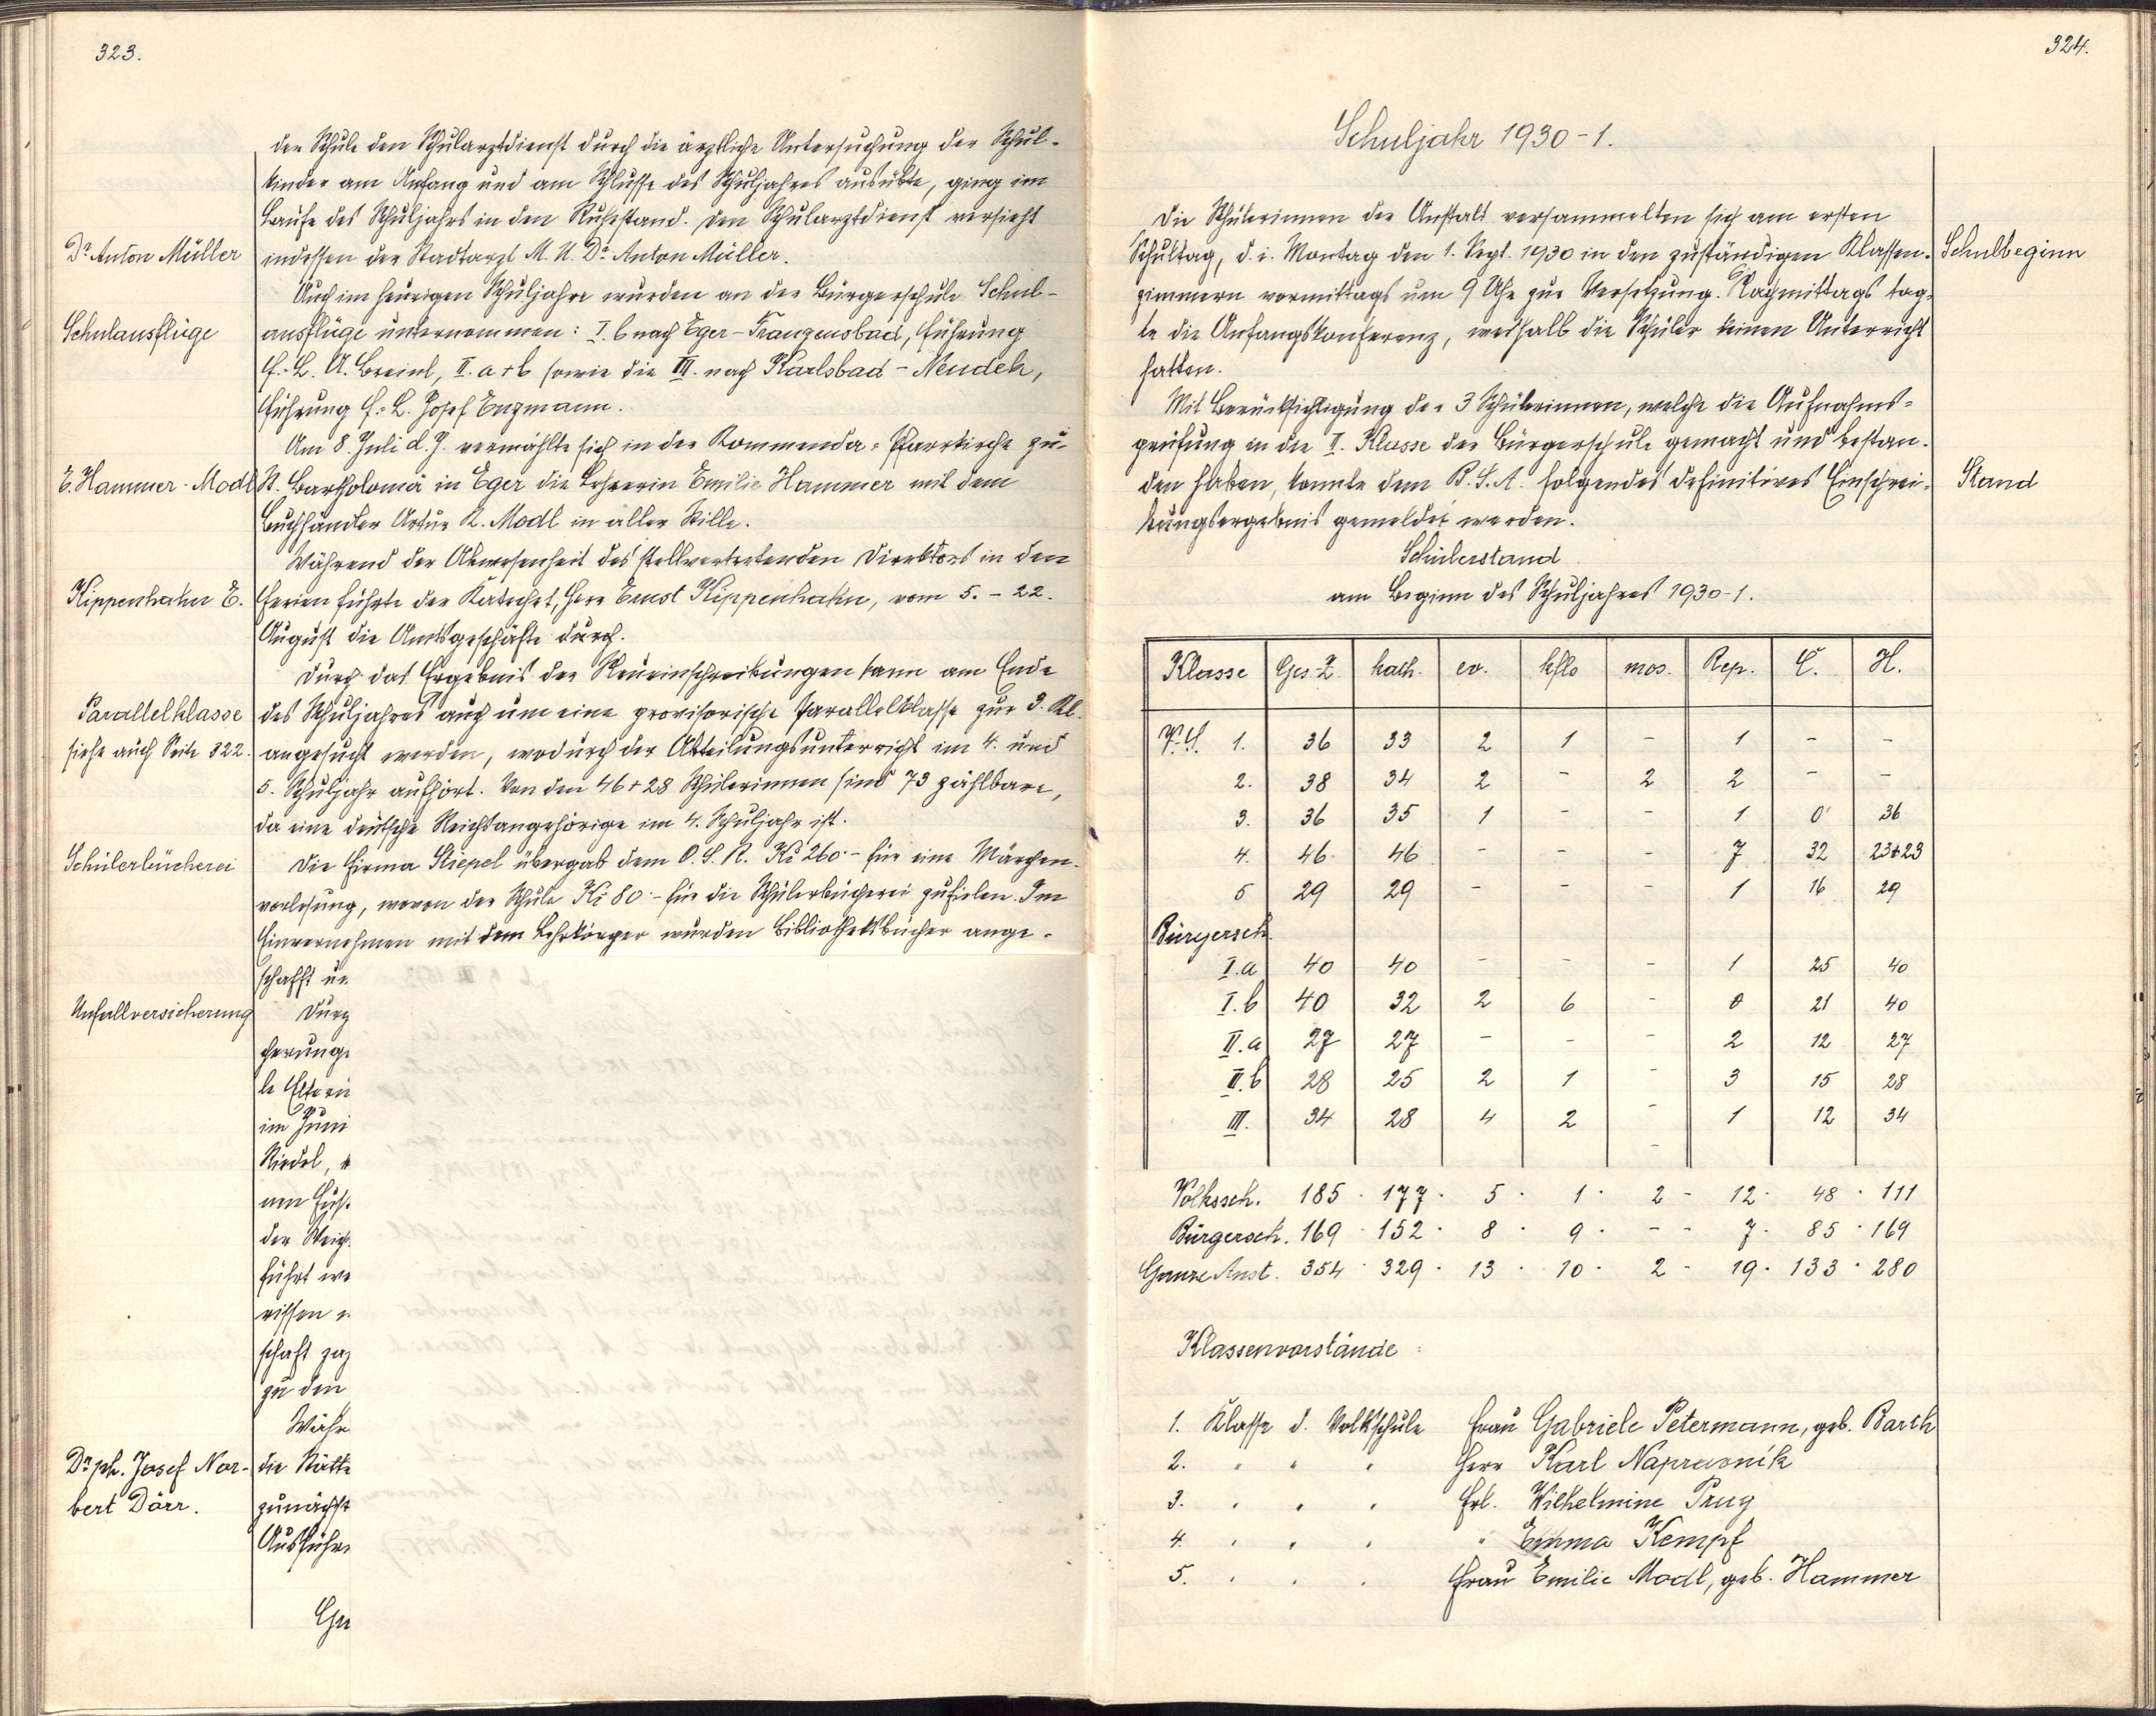 323.
der Schule den Schularztdienst durch die ärztliche Untersuchung der Schul-
kinder am Anfang und am Schlusse des Schuljahres ausübte, ging im
Laufe des Schuljahrs in den Ruhestand. Den Schularztdienst versieht
Dr Anton Müller
indessen der Stadtarzt M. U. Dr Anton Müller.
Auch im heurigen Schuljahre wurden an der Bürgerschule Schul-
Schulausflüge
ausflüge unternommen: I. b nach Eger-Franzensbad, Führung
f.-L. A. Breinl, II. a + b sowie die III. nach Karlsbad - Neudek,
Führung f.-L. Josef Enzmann.
Am 8. Juli d. J. vermählte sich in der Kommenda-Pfarrkirche zu
E. Hammer-Modl
St. Bartholomä in Eger die Lehrerin Emilie Hammer mit dem
Buchhändler Artur R. Modl in aller Stille.
Während der Abwesenheit des stellvertretenden Direktors in den
Kippenhahn E.
Ferien führte der Katechet, Herr Ernst Kippenhahn, vom 5. - 22.
August die Amtsgeschäfte durch.
Durch das Ergebnis der Neueinschreibungen kann am Ende
Parallelklasse
des Schuljahres auch um eine provisorische Parallelklasse zur 3. Kl.
siehe auch Seite 322.
angesucht werden, wodurch der Abteilungsunterricht im 4. und
5. Schuljahr aufhört. Von den 46 + 28 Schülerinnen sind 73 zählbare,
da eine deutsche Reichsangehörige im 4. Schuljahr ist.
Schülerbücherei
Die Firma Stiepel übergab dem O. S. R. Kč 260·- für eine Märchen-
vorlesung, wovon der Schule Kč 80·- für die Schülerbücherei zufielen. Im
Einvernehmen mit dem Lehrkörper wurden Bibliotheksbücher ange-
schafft un
Unfallversicherung
Durch
cherunge
le Eltern
im Juni
Riedel,
nen
der
führt we
rissen
schaft
zu den
Währ
Dr. ph. Josef Nor-
bert Dörr.
die Stätte
zunächst
Ausführ
324.
Schuljahr 1930-1.
Die Schülerinnen der Anstalt versammelten sich am ersten
Schultag, d. i. Montag den 1. Sept. 1930 in den zuständigen Klassen-
Schulbeginn
zimmern vormittags um 9 Uhr zur Versetzung. Nachmittags tag-
te die Anfangskonferenz, weshalb die Schüler keinen Unterricht
hatten.
Mit Berücksichtigung der 3 Schülerinnen, welche die Aufnahms-
prüfung in die II. Klasse der Bürgerschule gemacht und bestan-
den haben, konnte dem B. S. A. folgendes definitives Einschrei-
Stand
bungsergebnis gemeldet werden.
Schülerstand
am Beginn des Schuljahres 1930-1.
Klasse Ges.-Z. kath. ev. kflo mos. Rep. Č. H.
V. S. 1. 36 33 2 1 - 1 - -
2. 38 34 2 - 2 2 - -
3. 36 35 1 - - 1 0 36
4. 46 46 - - - 7 32 23+23
5 29 29 - - - 1 16 29
Bürgersch.
I. a 40 40 - - - 1 25 40
I. b 40 32 2 6 - 0 21 40
II. a 27 27 - - - 2 12 27
II. b 28 25 2 1 - 3 15 28
III. 34 28 4 2 - 1 12 34
-
Volkssch. 185 · 177 · 5 · 1 · 2 - 12 · 48 · 111
Bürgersch. 169 · 152 · 8 · 9 · - - 7 · 85 · 169
Ganze Anst. 354 · 329 · 13 · 10 · 2 - 19 · 133 · 280
Klassenvorstände:
1. Klasse d. Volksschule Frau Gabriele Petermann, geb. Barth
2. " " " Herr Karl Napravnik
3. " " " Frl. Wilhelmine Prug
4. " " " " Emma Kempf
5. " " " Frau Emilie Modl, geb. Hammer